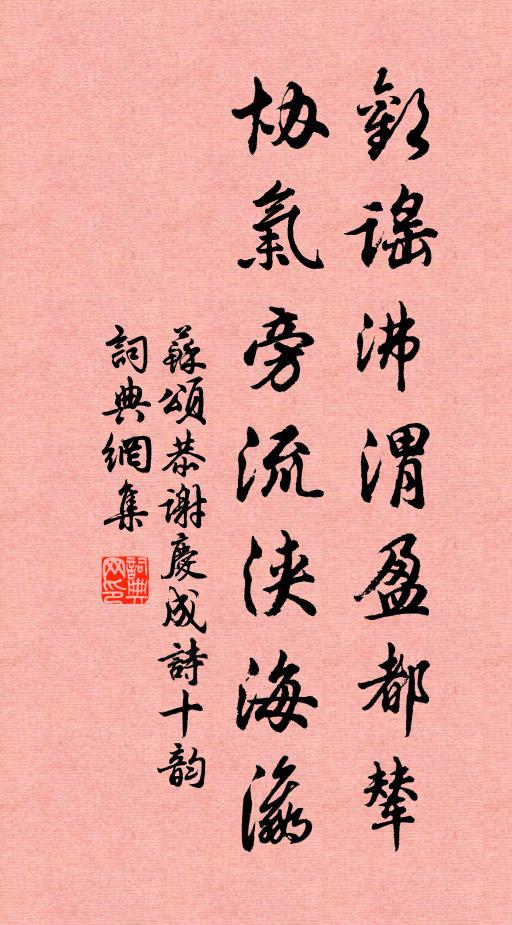 歡謠沸渭盈都輦
協氣旁流浹海瀛
蘇頌恭謝慶成詩十韵
詞典網集
詞典网印